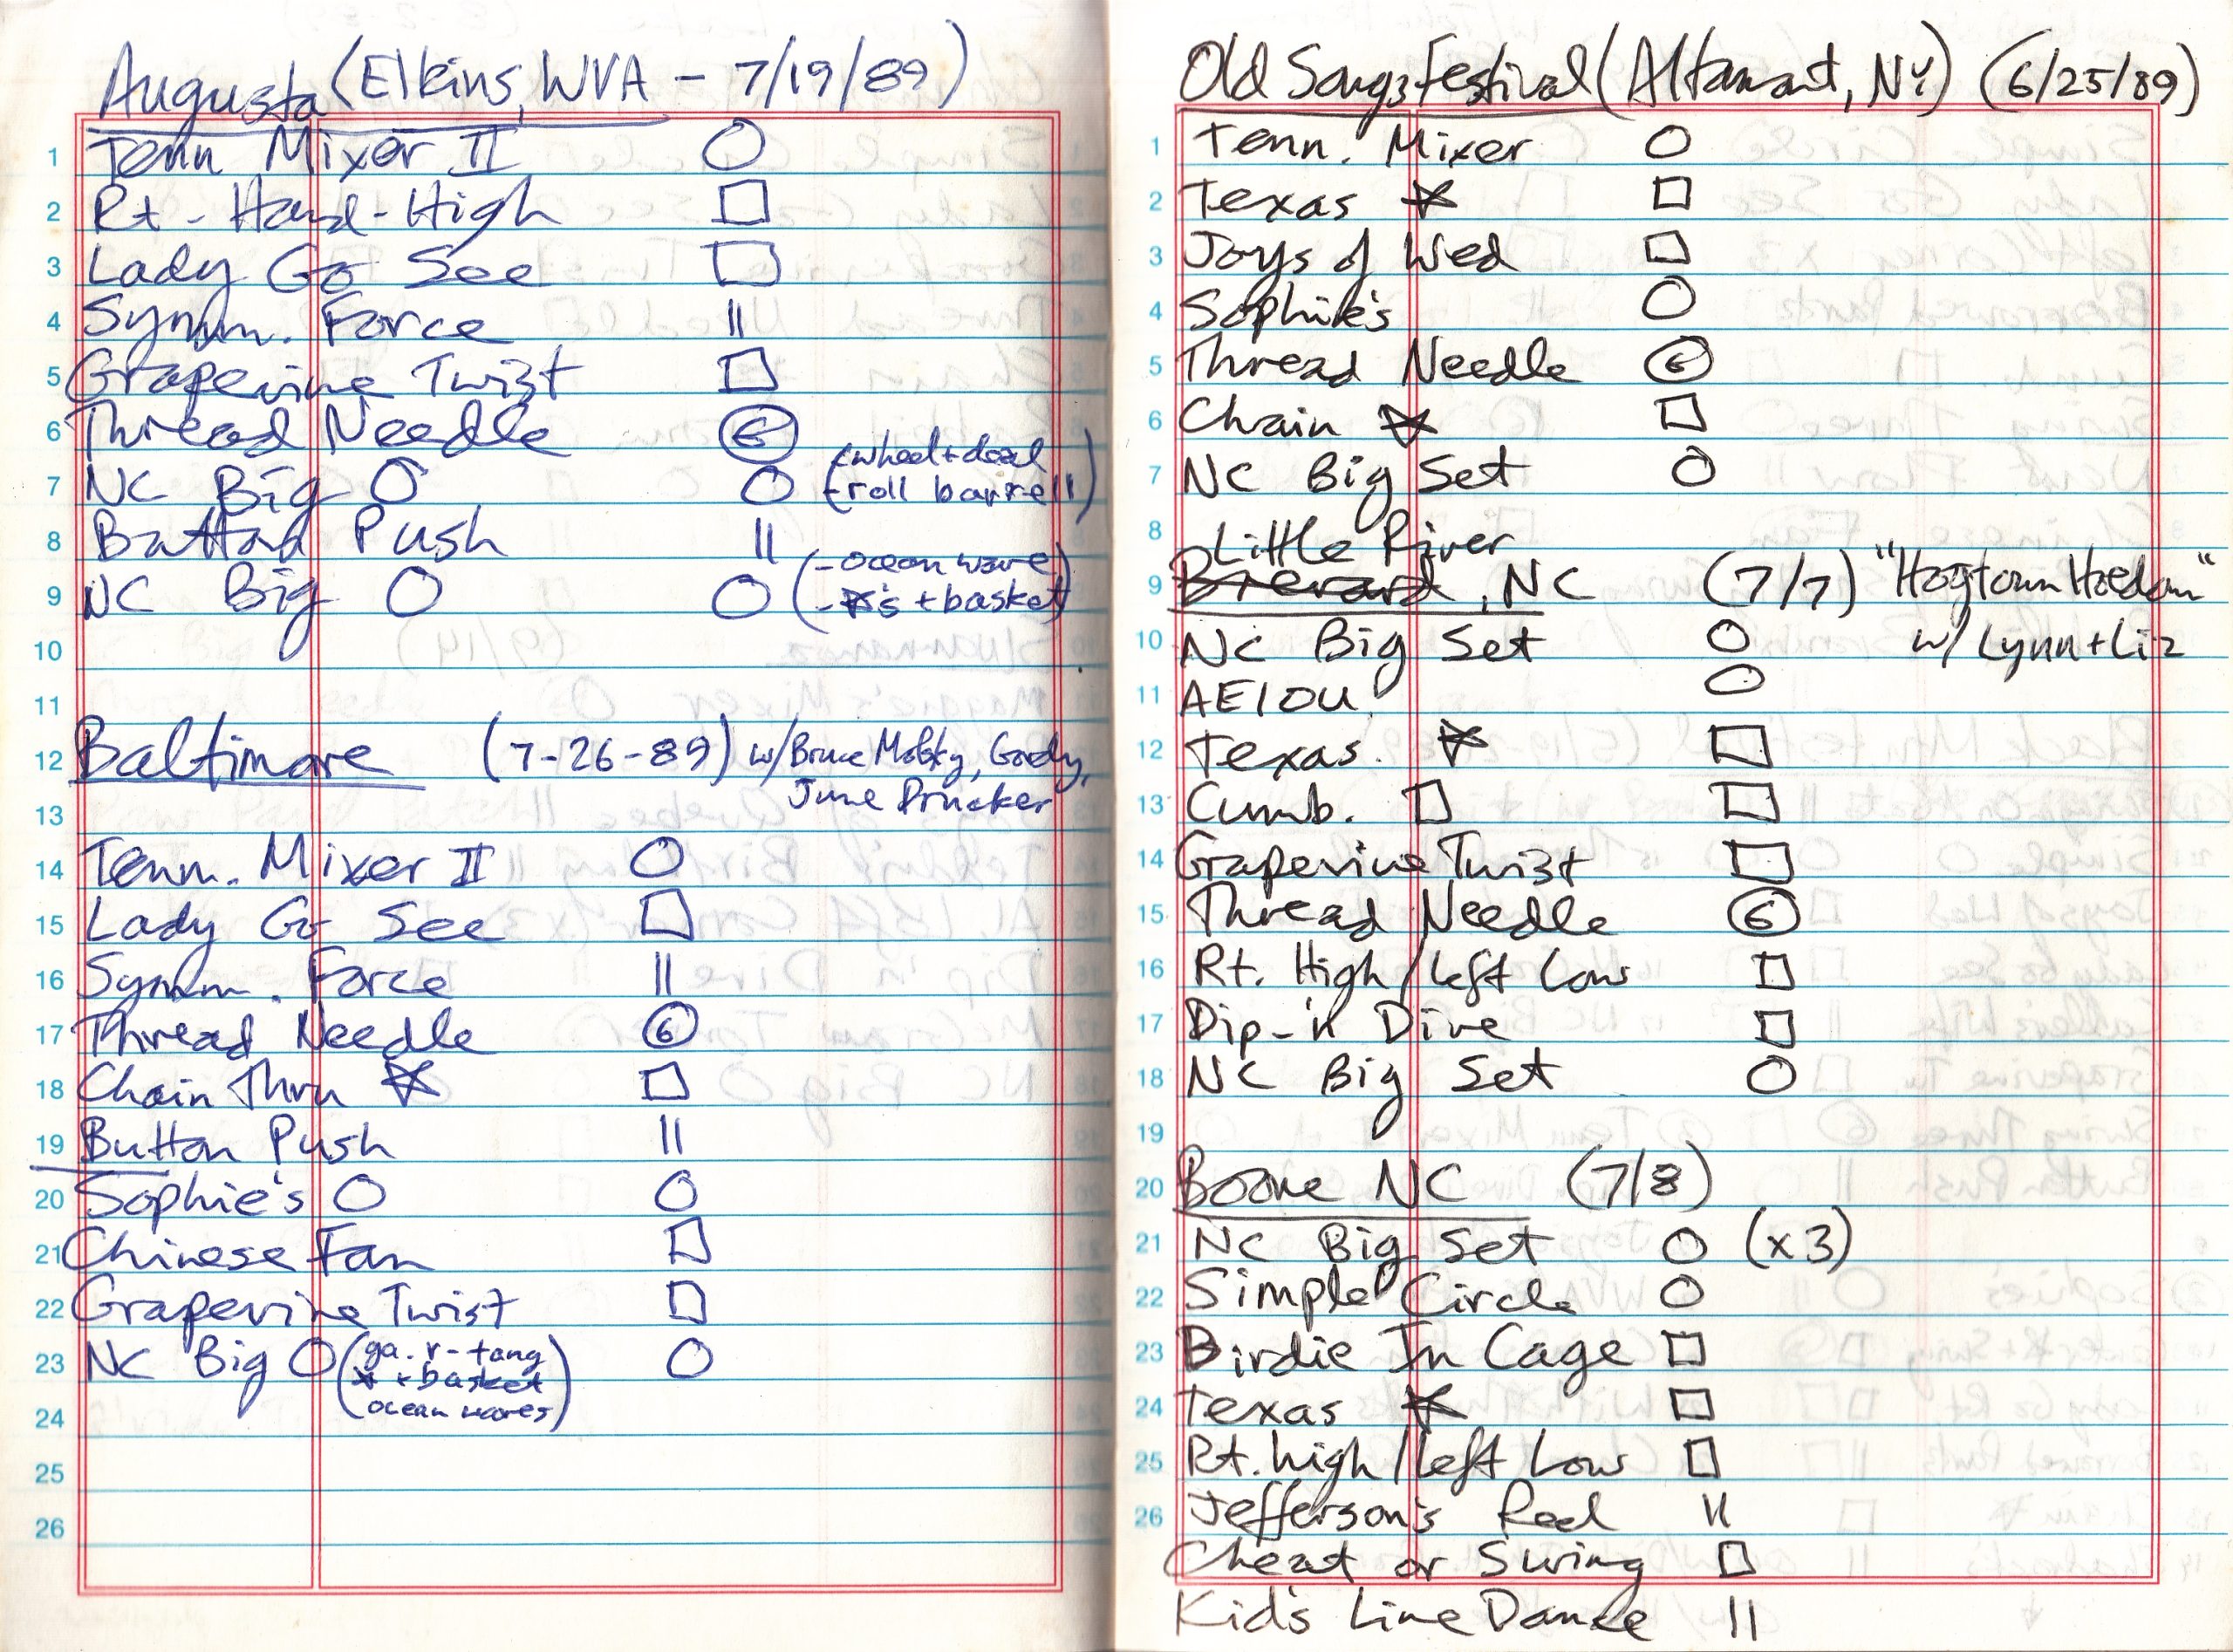 Augusta (Elkins, WVA - 7/19/89)
1 Tenn Mixer II ○
2 Rt - Hand - High □
3 Lady Go See □
4 Symm. Force ||
5 Grapevine Twist □
6 Thread Needle ⑥
7 NC Big ○ ○ (-wheel+deal
-roll barrell)
8 Button Push ||
9 NC Big ○ ○ (-ocean wave
-☆'s + basket)
10
11
12 Baltimore (7-26-89) w/Bruce Molsky, Gordy,
13 June Drucker
14 Tenn. Mixer II ○
15 Lady Go See □
16 Symm. Force ||
17 Thread Needle ⑥
18 Chain Thru ☆ □
19 Button Push ||
20 Sophie's ○ ○
21 Chinese Fan □
22 Grapevine Twist □
23 NC Big ○ (ga. r-tang ○
☆ + basket
24 ocean waves)
25
26
Old Songs Festival (Altamont, NY) (6/25/89)
1 Tenn. Mixer ○
2 Texas ☆ □
3 Joys of Wed □
4 Sophie's ○
5 Thread Needle ⑥
6 Chain ☆ □
7 NC Big Set ○
8 Little River
9 Brevard, NC (7/7) "Hogtown Hoedown"
10 NC Big Set ○ w/ Lynn+Liz
11 AEIOU ○
12 Texas. ☆ □
13 Cumb. □ □
14 Grapevine Twist □
15 Thread Needle ⑥
16 Rt. High/Left Low □
17 Dip-'n Dive □
18 NC Big Set ○
19
20 Boone NC (7/8)
21 NC Big Set ○ (x3)
22 Simple Circle ○
23 Birdie In Cage □
24 Texas ☆ □
25 Rt. high/Left Low □
26 Jefferson's Reel ||
Cheat or Swing □
Kid's Line Dance ||